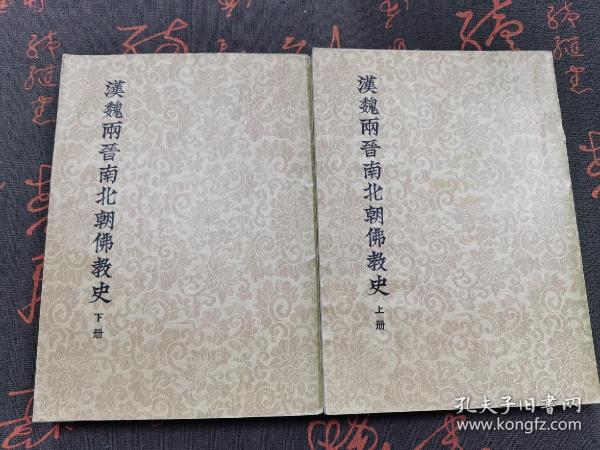 漢魏兩晉南北朝佛教史
下册
漢魏兩晉南北朝佛教史
上册
孔夫子旧书网
www.kongfz.com